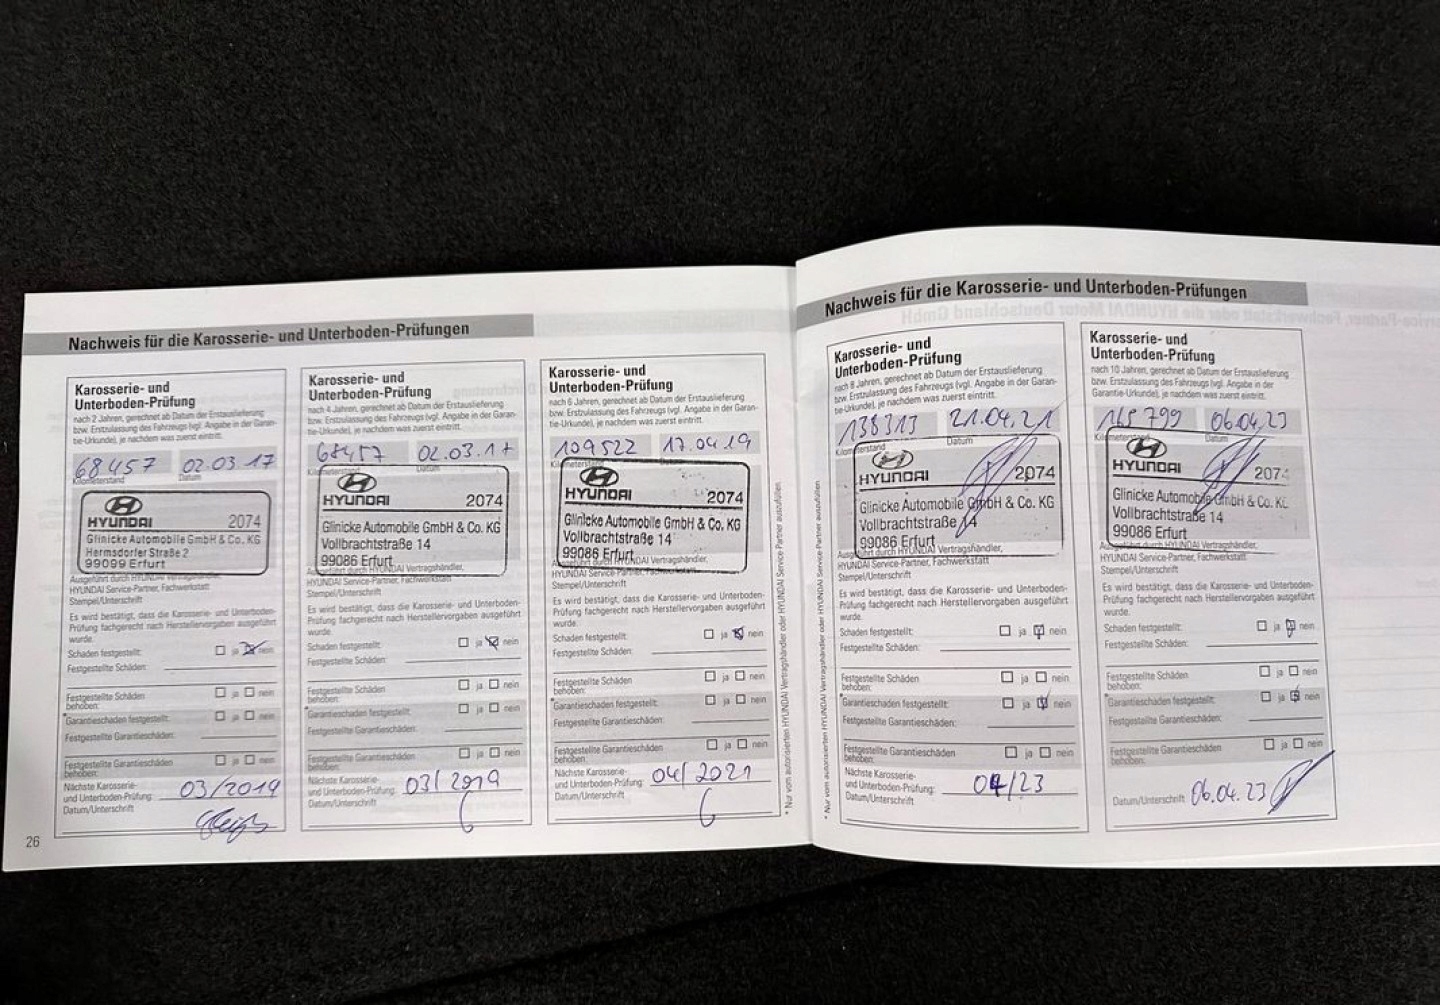 Nachweis für die Karosserie- und Unterboden-Prüfungen
Karosserie- und
Unterboden-Prüfung
nach 2 Jahren, gerechnet ab Datum der Erstauslieferung
bzw. Erstzulassung des Fahrzeugs (vgl. Angabe in der Garan-
tie-Urkunde), je nachdem was zuerst eintritt.
68457 02.03.17
Kilometerstand Datum
HYUNDAI 2074
Glinicke Automobile GmbH & Co. KG
Hermsdorfer Straße 2
99099 Erfurt
Ausgeführt durch HYUNDAI Vertragshändler,
HYUNDAI Service-Partner, Fachwerkstatt
Stempel/Unterschrift
Es wird bestätigt, dass die Karosserie- und Unterboden-
Prüfung fachgerecht nach Herstellervorgaben ausgeführt
wurde.
Schaden festgestellt: ja nein
Festgestellte Schäden:
Festgestellte Schäden
behoben: ja nein
*Garantieschaden festgestellt: ja nein
Festgestellte Garantieschäden:
Festgestellte Garantieschäden
behoben: ja nein
Nächste Karosserie-
und Unterboden-Prüfung: 03/2019
Datum/Unterschrift
26
Karosserie- und
Unterboden-Prüfung
nach 4 Jahren, gerechnet ab Datum der Erstauslieferung
bzw. Erstzulassung des Fahrzeugs (vgl. Angabe in der Garan-
tie-Urkunde), je nachdem was zuerst eintritt.
68457 02.03.17
Kilometerstand Datum
HYUNDAI 2074
Glinicke Automobile GmbH & Co. KG
Vollbrachtstraße 14
99086 Erfurt
Ausgeführt durch HYUNDAI Vertragshändler,
HYUNDAI Service-Partner, Fachwerkstatt
Stempel/Unterschrift
Es wird bestätigt, dass die Karosserie- und Unterboden-
Prüfung fachgerecht nach Herstellervorgaben ausgeführt
wurde.
Schaden festgestellt: ja nein
Festgestellte Schäden:
Festgestellte Schäden
behoben: ja nein
*Garantieschaden festgestellt: ja nein
Festgestellte Garantieschäden:
Festgestellte Garantieschäden
behoben: ja nein
Nächste Karosserie-
und Unterboden-Prüfung: 03/2019
Datum/Unterschrift
Karosserie- und
Unterboden-Prüfung
nach 6 Jahren, gerechnet ab Datum der Erstauslieferung
bzw. Erstzulassung des Fahrzeugs (vgl. Angabe in der Garan-
tie-Urkunde), je nachdem was zuerst eintritt.
109522 17.04.19
Kilometerstand Datum
HYUNDAI 2074
Glinicke Automobile GmbH & Co. KG
Vollbrachtstraße 14
99086 Erfurt
Ausgeführt durch HYUNDAI Vertragshändler,
HYUNDAI Service-Partner, Fachwerkstatt
Stempel/Unterschrift
Es wird bestätigt, dass die Karosserie- und Unterboden-
Prüfung fachgerecht nach Herstellervorgaben ausgeführt
wurde.
Schaden festgestellt: ja nein
Festgestellte Schäden:
Festgestellte Schäden
behoben: ja nein
*Garantieschaden festgestellt: ja nein
Festgestellte Garantieschäden:
Festgestellte Garantieschäden
behoben: ja nein
Nächste Karosserie-
und Unterboden-Prüfung: 04/2021
Datum/Unterschrift
* Nur vom autorisierten HYUNDAI Vertragshändler oder HYUNDAI Service-Partner auszufüllen.
Nachweis für die Karosserie- und Unterboden-Prüfungen
* Nur vom autorisierten HYUNDAI Vertragshändler oder HYUNDAI Service-Partner auszufüllen.
Karosserie- und
Unterboden-Prüfung
nach 8 Jahren, gerechnet ab Datum der Erstauslieferung
bzw. Erstzulassung des Fahrzeugs (vgl. Angabe in der Garan-
tie-Urkunde), je nachdem was zuerst eintritt.
138313 21.04.21
Kilometerstand Datum
HYUNDAI 2074
Glinicke Automobile GmbH & Co. KG
Vollbrachtstraße 14
99086 Erfurt
Ausgeführt durch HYUNDAI Vertragshändler,
HYUNDAI Service-Partner, Fachwerkstatt
Stempel/Unterschrift
Es wird bestätigt, dass die Karosserie- und Unterboden-
Prüfung fachgerecht nach Herstellervorgaben ausgeführt
wurde.
Schaden festgestellt: ja nein
Festgestellte Schäden:
Festgestellte Schäden
behoben: ja nein
*Garantieschaden festgestellt: ja nein
Festgestellte Garantieschäden:
Festgestellte Garantieschäden
behoben: ja nein
Nächste Karosserie-
und Unterboden-Prüfung: 04/23
Datum/Unterschrift
Karosserie- und
Unterboden-Prüfung
nach 10 Jahren, gerechnet ab Datum der Erstauslieferung
bzw. Erstzulassung des Fahrzeugs (vgl. Angabe in der
Garantie-Urkunde), je nachdem was zuerst eintritt.
165799 06.04.23
Kilometerstand Datum
HYUNDAI 2074
Glinicke Automobile GmbH & Co. KG
Vollbrachtstraße 14
99086 Erfurt
Ausgeführt durch HYUNDAI Vertragshändler,
HYUNDAI Service-Partner, Fachwerkstatt
Stempel/Unterschrift
Es wird bestätigt, dass die Karosserie- und Unterboden-
Prüfung fachgerecht nach Herstellervorgaben ausgeführt
wurde.
Schaden festgestellt: ja nein
Festgestellte Schäden:
Festgestellte Schäden
behoben: ja nein
*Garantieschaden festgestellt: ja nein
Festgestellte Garantieschäden:
Festgestellte Garantieschäden
behoben: ja nein
Datum/Unterschrift 06.04.23